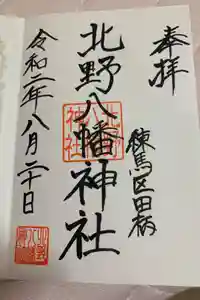 奉拝
練馬区田柄
北野八幡神社
令和二年八月二十日